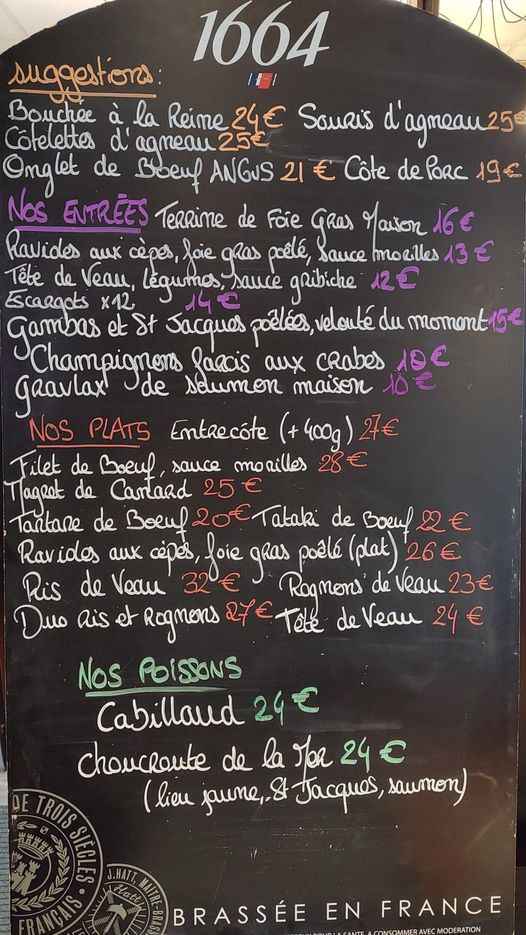 1664
suggestions:
Bouchée à la Reine 24€ Souris d'agneau 25€
Côtelettes d'agneau 25€
Onglet de Boeuf ANGUS 21€ Côte de Porc 19€
NOS ENTRÉES Terrine de Foie Gras Maison 16€
Ravioles aux cèpes, foie gras poêlé, sauce morilles 13€
Tête de Veau, légumes, sauce gribiche 12€
Escargots x12 14€
Gambas et St Jacques poêlées, velouté du moment 15€
Champignons farcis aux crabes 10€
Gravlax de saumon maison 10€
NOS PLATS Entrecôte (+400g) 27€
Filet de Boeuf, sauce morilles 28€
Magret de Canard 25€
Tartare de Boeuf 20€ Tataki de Boeuf 22€
Ravioles aux cèpes, foie gras poêlé (plat) 26€
Ris de Veau 32€ Rognons de Veau 23€
Duo Ris et Rognons 27€ Tête de Veau 24€
NOS POISSONS
Cabillaud 24€
Choucroute de la Mer 24€
(lieu jaune, St Jacques, saumon)
DE TROIS SIÈCLES
FRANÇAIS
J. HATT, MAITRE-BRAS
Hatt
BRASSÉE EN FRANCE
POUR LA SANTÉ, A CONSOMMER AVEC MODERATION